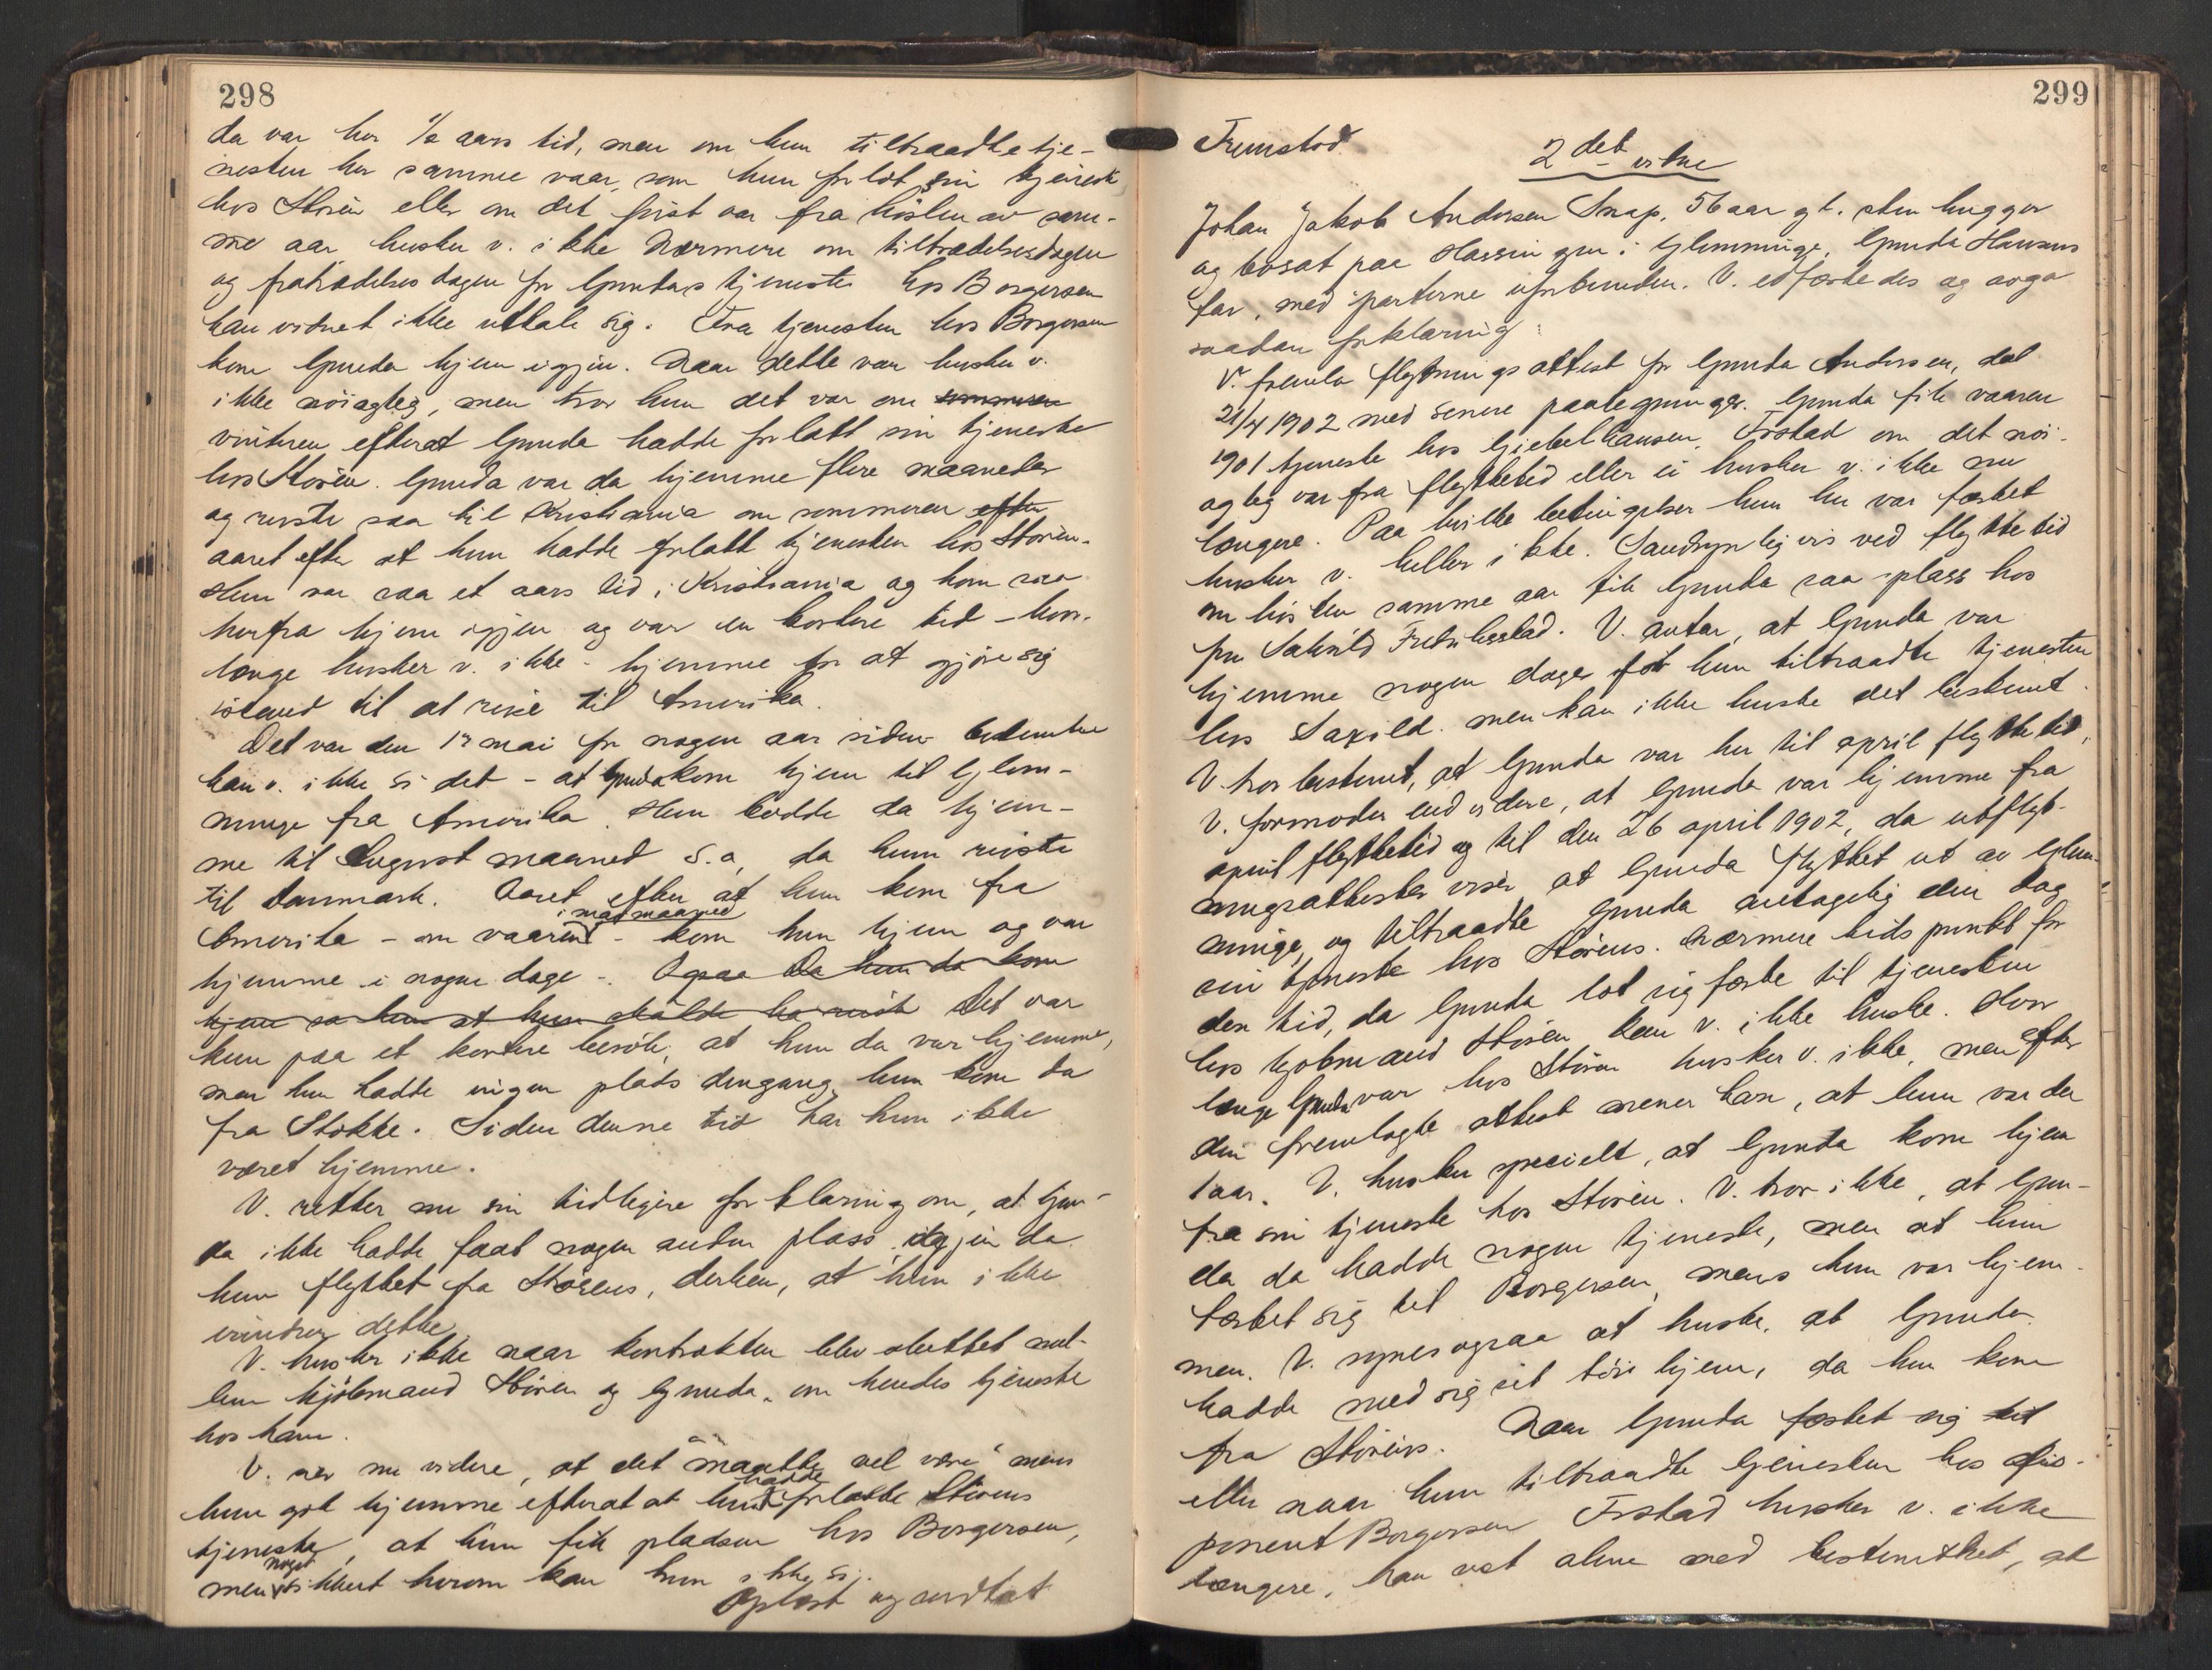 298
da var her ½ aars tid, men om hun tiltraadte tje-
nesten her samme vaar, som hun forlot sin tjeneste
hos Storén eller om det først var fra høsten av sam-
me aar husker v. ikke. Nærmere om tiltrædelsesdagen
og fratrædelsesdagen for Gundas tjeneste hos Borgersen
kan vidnet ikke uttale sig. Fra tjenesten hos Borgersen
kom Gunda hjem igjen. Naar dette var husker v.
ikke nøiagtig, men tror hun det var om sommeren
vinteren efterat Gunda hadde forlatt sin tjeneste
hos Storén. Gunda var da hjemme flere maaneder
og reiste saa til Kristiania om sommeren efter
aaret efter at hun hadde forlatt tjenesten hos Storén.
Hun var saa et aars tid i Kristiania og kom saa
herfra hjem igjen og var en kortere tid – hvor-
længe husker v. ikke – hjemme for at gjøre sig
istand til at reise til Amerika.
Det var den 17 mai for nogen aar siden bestemtere
kan v. ikke si det – at Gunda kom hjem til Glem-
minge fra Amerika. Hun bodde da hjem-
me til August maaned s.a, da hun reiste
til Danmark. Aaret efter at hun kom fra
Amerika – om vaaren i mai maaned – kom hun hjem og var
hjemme i nogen dage –. Ogsaa Da hun da kom
hjem sa hun at hun skulde ha reist Det var
kun paa et kortere besøk, at hun da var hjemme,
men hun hadde ingen plads dengang hun kom da
fra Stokke. Siden denne tid har hun ikke
været hjemme.
V. retter nu sin tidligere forklaring om, at Gun-
da ikke hadde faat nogen anden plass igjen da
hun flyttet fra Storéns, derhen, at hun ikke
erindrer dette.
V. husker ikke naar kontrakten blev sluttet mel-
lem kjøbmand Storén og Gunda om hendes tjeneste
hos ham.
V. sier nu videre, at det "maatte vel være" mens
hun gik hjemme efterat at hun hadde forlatte Storéns
tjeneste, at hun fik pladsen hos Borgersen,
men noget sikkert herom kan hun ikke si.
Oplest og vedtat
299
Fremstod
2det vitne
Johan Jakob Andersen Snap, 56 aar gl. stenhugger
og bosat paa Hassingen i Glemminge, Gunda Hansens
far, med parterne uforbunden. V. edfæstedes og avga
saadan forklaring:
V. fremla flytningsattest for Gunda Andersen, dat
21/4 1902 med senere paategninger. Gunda fik vaaren
1901 tjeneste hos Gjebelhausen, Frstad om det nøi-
agtig var fra flyttetid eller ei husker v. ikke nu
længere. Paa hvilke betingelser hun her var fæstet
husker v. heller ikke. Sandsynligvis ved flyttetid
om høsten samme aar fik Gunda saa plass hos
fru Saxild Fredriksstad. V. antar, at Gunda var
hjemme nogen dager før hun tiltraadte tjenesten
hos Saxild. men kan ikke huske det bestemt.
V. tror bestemt, at Gunda var her til april flyttetid.
V. formoder endvidere, at Gunda var hjemme fra
april flyttetid og til den 26 april 1902, da utflyt-
ningsattesten viser at Gunda flyttet ut av Glem-
minge, og tiltraadte Gunda antagelig den dag
sin tjeneste hos Storéns. Nærmere tidspunkt for
den tid, da Gunda lot sig fæste til tjenesten
hos kjøbmand Storén kan v. ikke huske. Hvor
længe Gunda var hos Storén husker v. ikke, men efter
den fremlagte attest mener han, at hun var der
1 aar. V. husker specielt, at Gunda kom hjem
fra sin tjeneste hos Storén. V. tror ikke, at Gun-
da da hadde nogen tjeneste, men at hun
fæstet sig til Borgersen, mens hun var hjem-
men. V. synes ogsaa at huske, at Gunda
hadde med sig sit tøi hjem, da hun kom
fra Storéns. Naar Gunda fæstet sig til
eller naar hun tiltraadte tjenesten hos dis-
ponent Borgersen Frstad husker v. ikke
længere, han vet alene med bestemthet, at